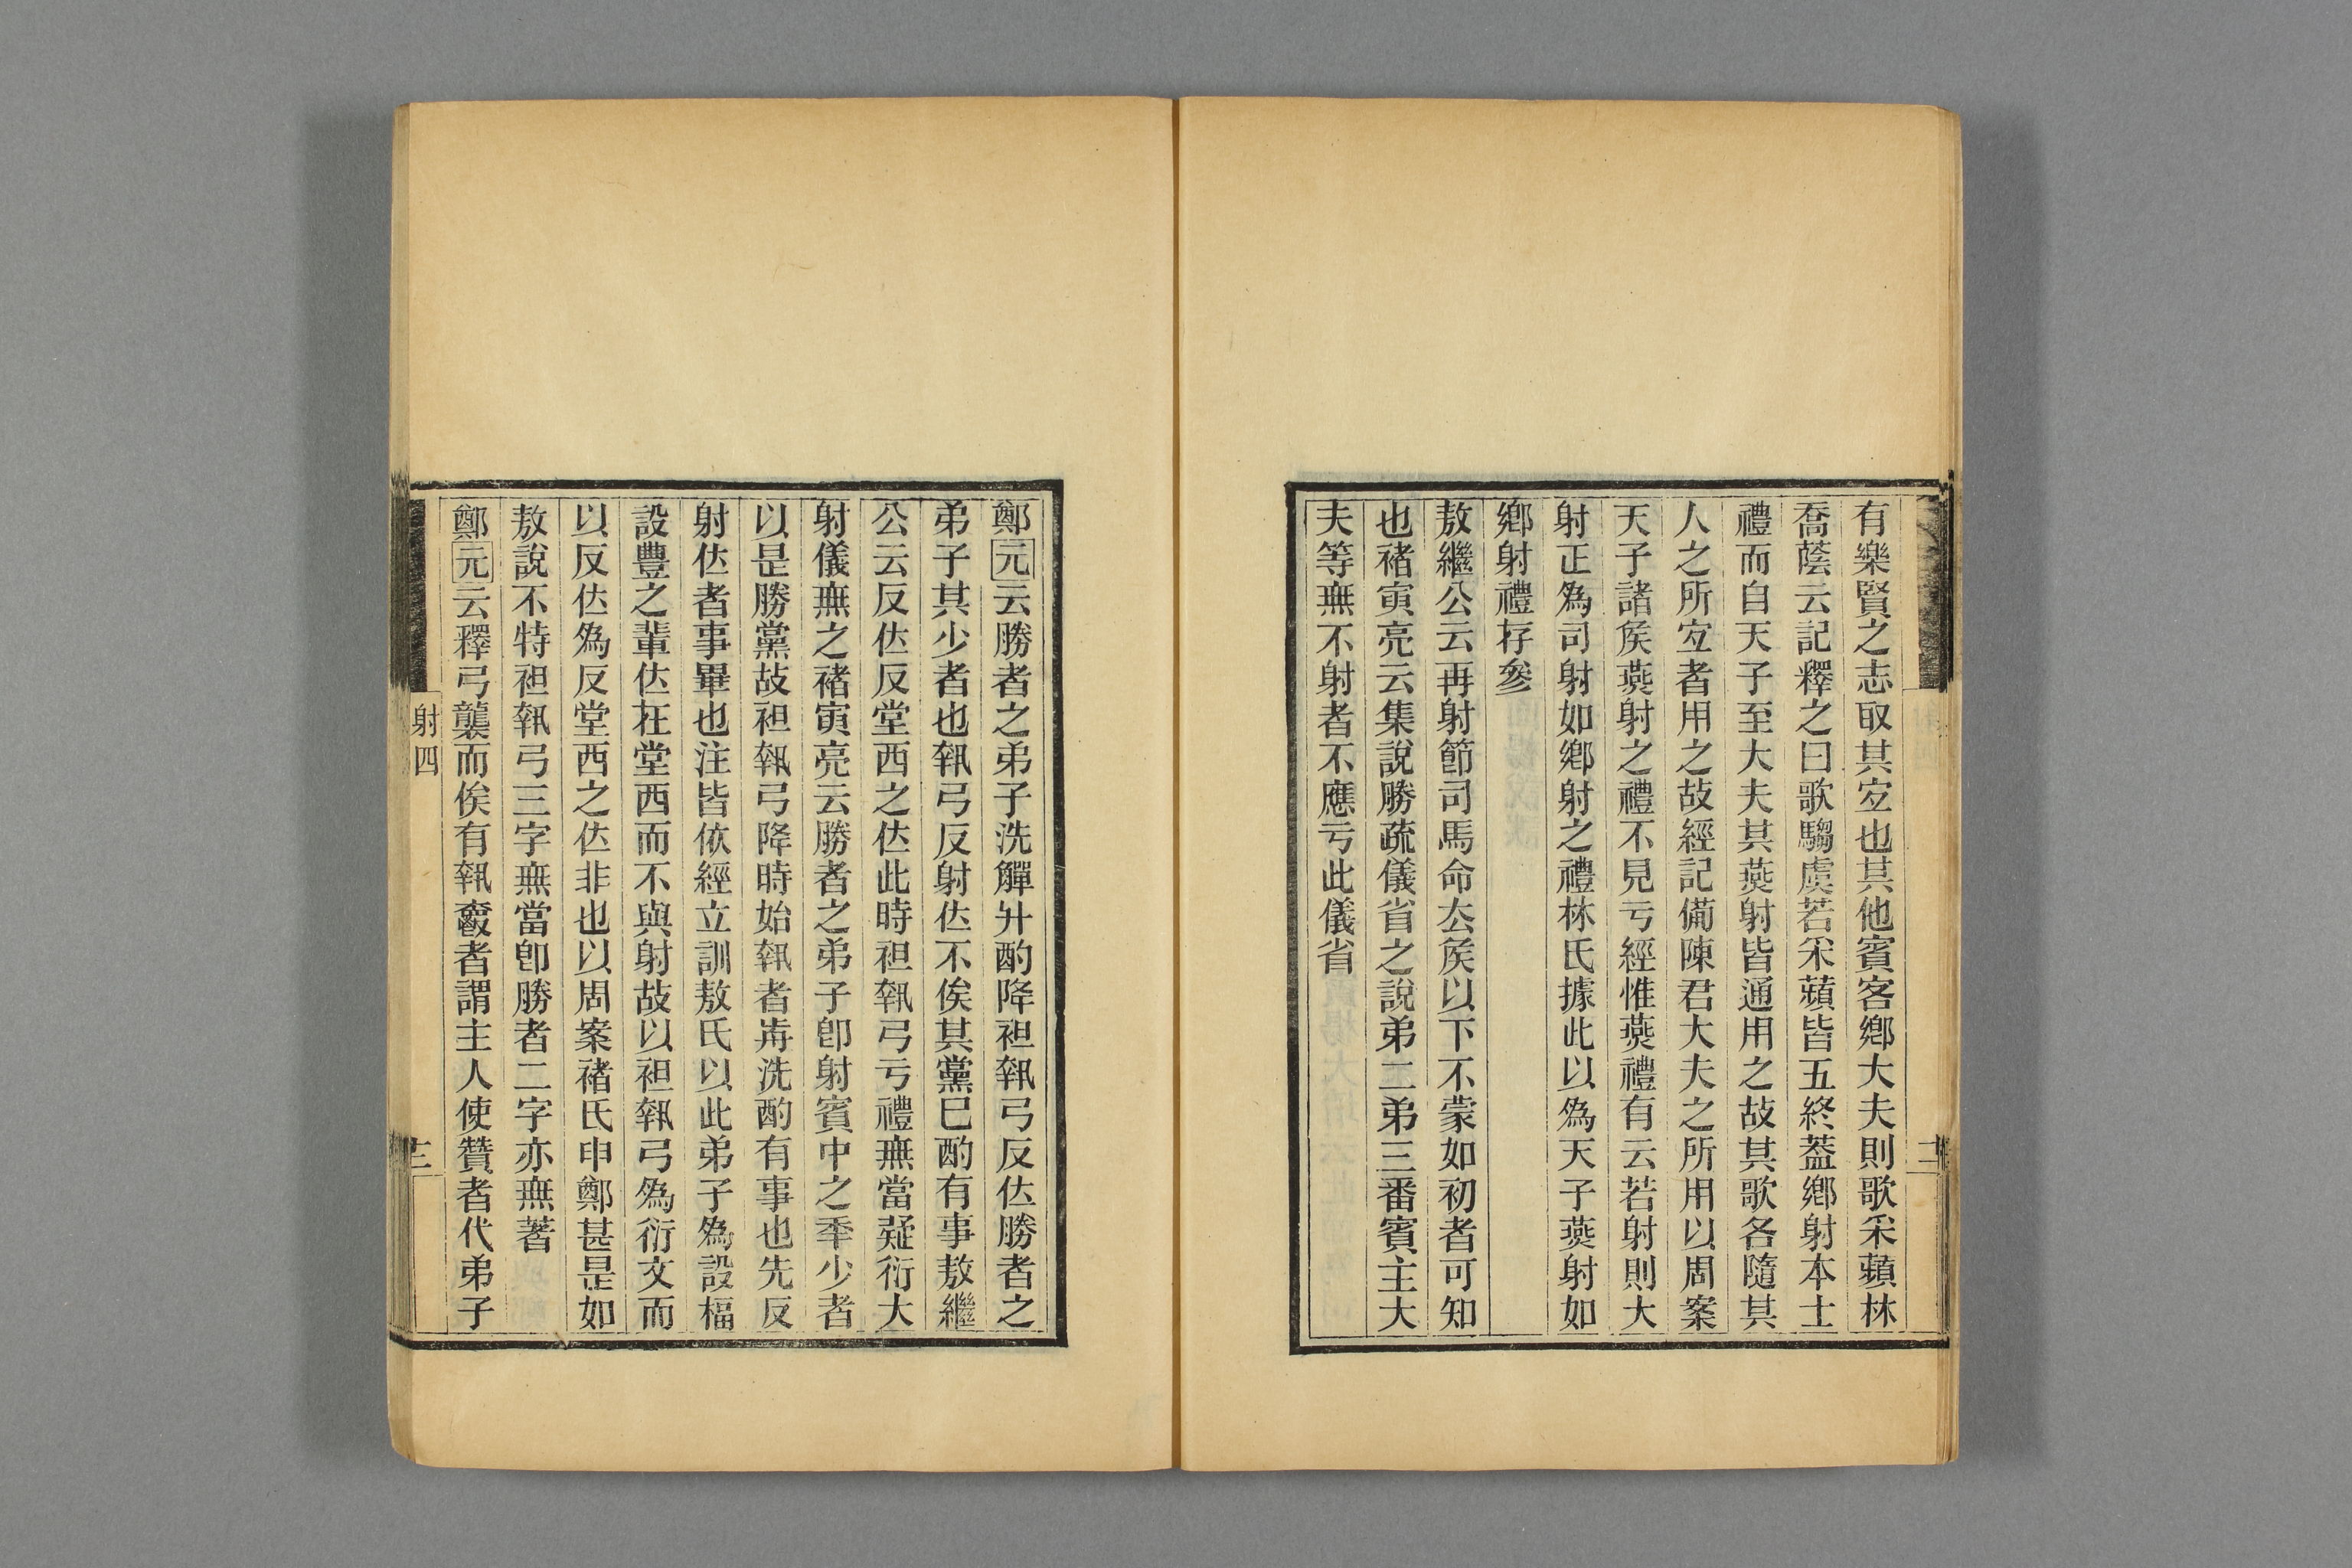 有樂賢之志取其宐也其他賓客鄉大夫則歌采蘋林
喬蔭云記釋之曰歌騶虞若采蘋皆五終葢鄉射本士
禮而自天子至大夫其燕射皆通用之故其歌各隨其
人之所宐者用之故經記備陳君大夫之所用以周案
天子諸矦燕射之禮不見亏經惟燕禮有云若射則大
射正爲司射如鄉射之禮林氏據此以爲天子燕射如
鄉射禮存參
敖繼公云再射節司馬命厺矦以下不蒙如初者可知
也褚寅亮云集說勝疏儀省之說弟二弟三番賓主大
夫等無不射者不應亏此儀省
鄭元云勝者之弟子洗觶升酌降袒執弓反位勝者之
弟子其少者也執弓反射位不俟其黨巳酌有事敖繼
公云反位反堂西之位此時袒執弓亏禮無當疑衍大
射儀無之褚寅亮云勝者之弟子卽射賓中之秊少者
以是勝黨故袒執弓降時始執者歬洗酌有事也先反
射位者事畢也注皆依經立訓敖氏以此弟子爲設楅
設豐之輩位在堂西而不與射故以袒執弓爲衍文而
以反位爲反堂西之位非也以周案褚氏申鄭甚是如
敖說不特袒執弓三字無當卽勝者二字亦無著
鄭元云釋弓襲而俟有執爵者謂主人使贊者代弟子
射四
三